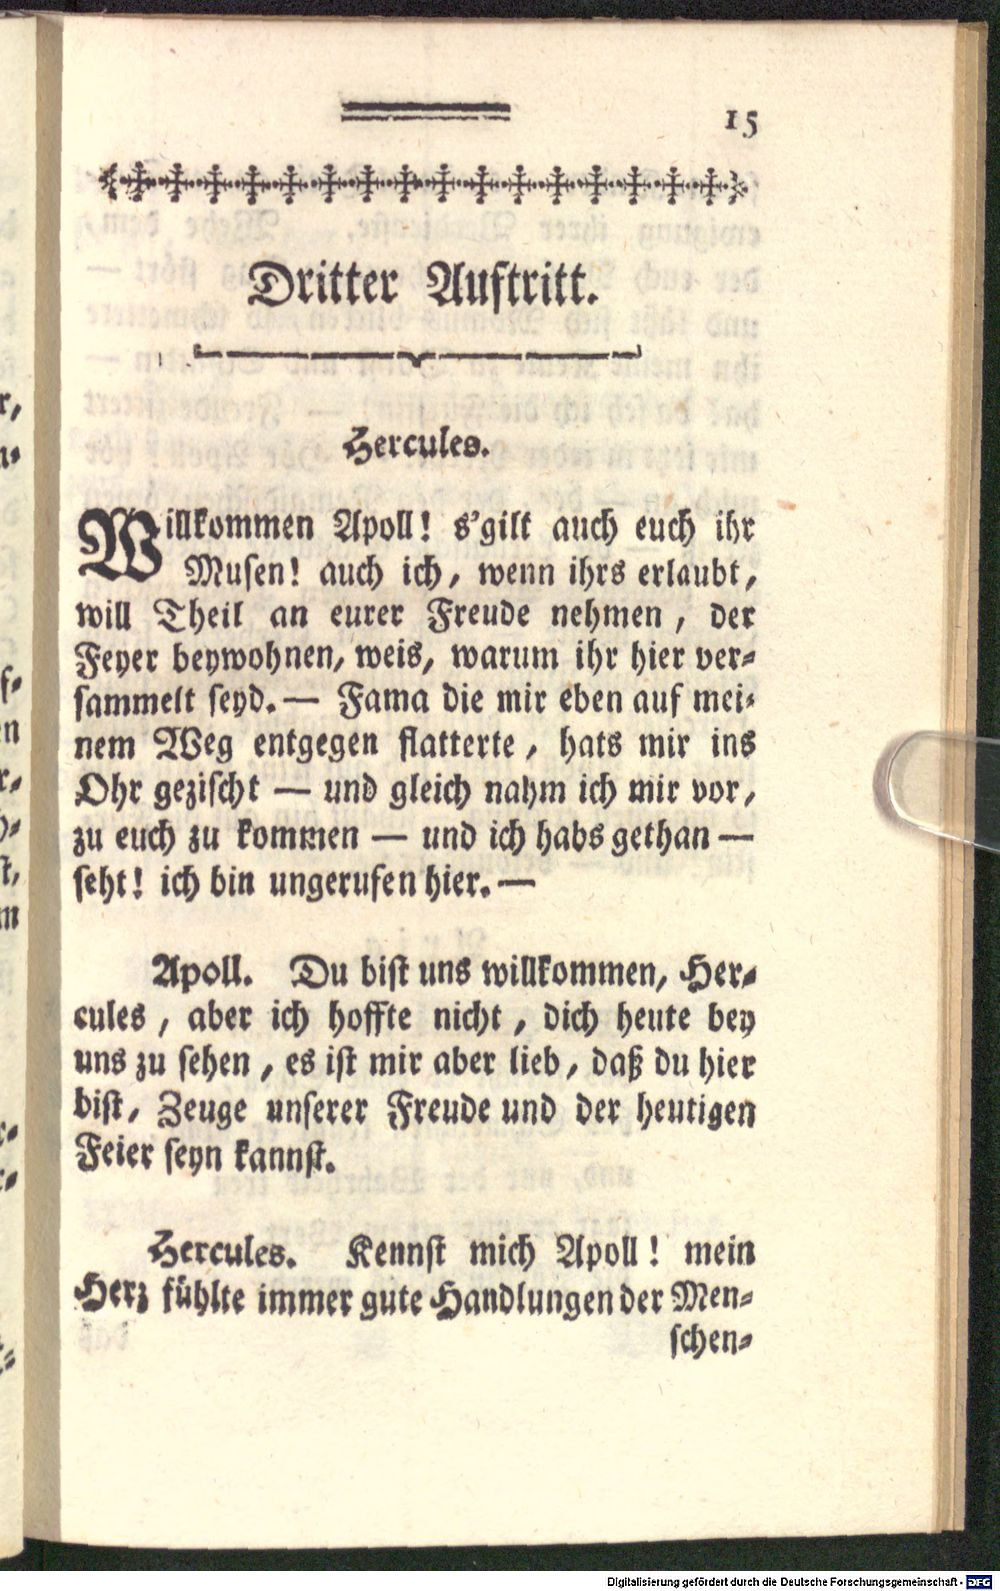 15
Dritter Auftritt.
Hercules.
Willkommen Apoll! s'gilt auch euch ihr
Musen! auch ich, wenn ihrs erlaubt,
will Theil an eurer Freude nehmen, der
Feyer beywohnen, weis, warum ihr hier ver-
sammelt seyd. — Fama die mir eben auf mei-
nem Weg entgegen flatterte, hats mir ins
Ohr gezischt — und gleich nahm ich mir vor,
zu euch zu kommen — und ich habs gethan —
seht! ich bin ungerufen hier. —
Apoll. Du bist uns willkommen, Her-
cules, aber ich hoffte nicht, dich heute bey
uns zu sehen, es ist mir aber lieb, daß du hier
bist, Zeuge unserer Freude und der heutigen
Feier seyn kannst.
Hercules. Kennst mich Apoll! mein
Herz fühlte immer gute Handlungen der Men-
schen-
Digitalisierung gefördert durch die Deutsche Forschungsgemeinschaft - DFG